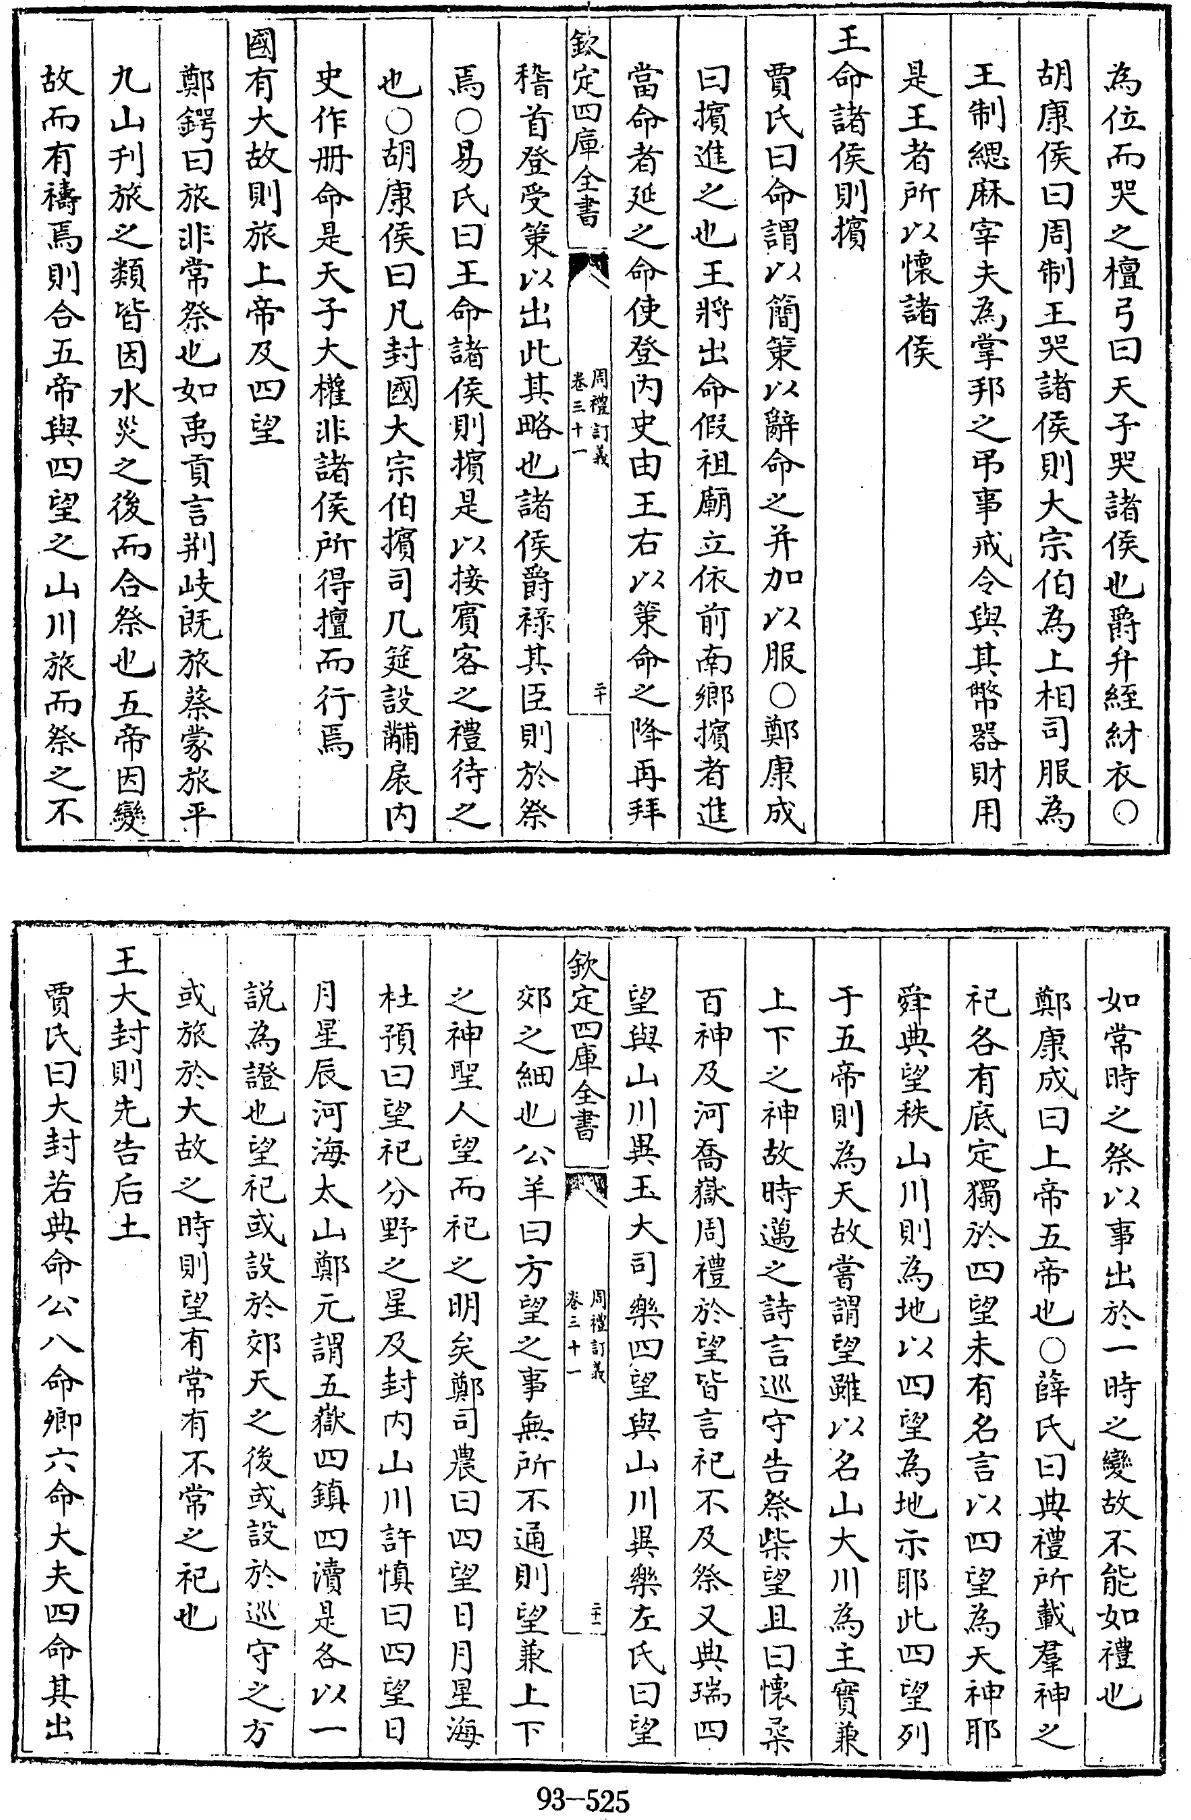 為位而哭之檀弓曰天子哭諸侯也爵弁絰紂衣○
胡康侯曰周制王哭諸侯則大宗伯為上相司服為
王制緦麻宰夫為掌邦之弔事戒令與其幣器財用
是王者所以懷諸侯
王命諸侯則擯
賈氏曰命謂以簡策以辭命之并加以服○鄭康成
曰擯進之也王將出命假祖廟立依前南鄉擯者進
當命者延之命使登內史由王右以策命之降再拜
欽定四庫全書
周禮訂義
卷三十一
二十
稽首登受策以出此其略也諸侯爵祿其臣則於祭
焉○易氏曰王命諸侯則擯是以接賓客之禮待之
也○胡康侯曰凡封國大宗伯擯司几筵設黼扆內
史作冊命是天子大權非諸侯所得擅而行焉
國有大故則旅上帝及四望
鄭鍔曰旅非常祭也如禹貢言荆岐既旅蔡蒙旅平
九山刋旅之類皆因水災之後而合祭也五帝因變
故而有禱焉則合五帝與四望之山川旅而祭之不
如常時之祭以事出於一時之變故不能如禮也
鄭康成曰上帝五帝也○薛氏曰典禮所載羣神之
祀各有底定獨於四望未有名言以四望為天神耶
舜典望秩山川則為地以四望為地示耶此四望列
于五帝則為天故嘗謂望雖以名山大川為主實兼
上下之神故時邁之詩言巡守告祭柴望且曰懷柔
百神及河喬嶽周禮於望皆言祀不及祭又典瑞四
望與山川異玉大司樂四望與山川異樂左氏曰望
欽定四庫全書
周禮訂義
卷三十一
二十一
郊之細也公羊曰方望之事無所不通則望兼上下
之神聖人望而祀之明矣鄭司農曰四望日月星海
杜預曰望祀分野之星及封內山川許慎曰四望日
月星辰河海太山鄭元謂五嶽四鎮四瀆是各以一
說為證也望祀或設於郊天之後或設於巡守之方
或旅於大故之時則望有常有不常之祀也
王大封則先告后土
賈氏曰大封若典命公八命卿六命大夫四命其出
93-525